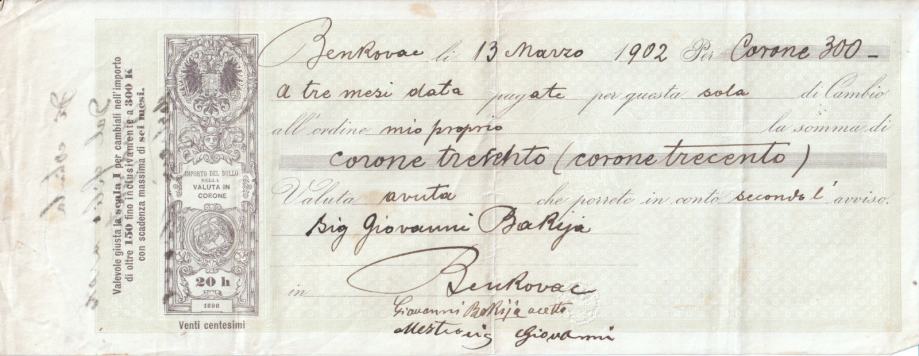 Valevole giusta la scala I per cambiali nell'importo
di oltre 150 fino inclusivamente a 300 K
con scadenza massima di sei mesi.
IMPORTO DEL BOLLO
NELLA
VALUTA IN
CORONE
20 h
1898
Venti centesimi
Benkovac li 13 Marzo 1902 Per Corone 300 –
a tre mesi data pagate per questa sola di Cambio
all'ordine mio proprio la somma di
corone trecento (corone trecento)
Valuta avuta che porrete in conto secondo l' avviso.
Sig Giovanni Bakija
in Benkovac
Giovanni Bakija acetto
Giovanni